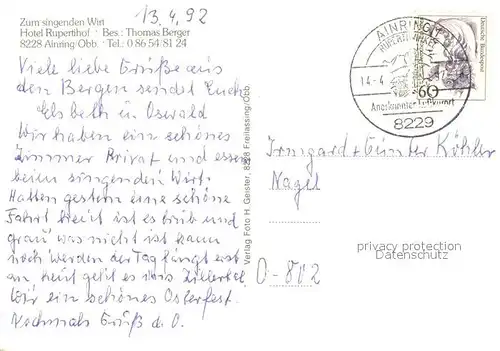 13.4.92
Zum singenden Wirt
Hotel Rupertihof · Bes.: Thomas Berger
8228 Ainring/Obb. · Tel.: 0 86 54/81 24
Viele liebe Grüße aus
den Bergen sendet Euch
Elsbeth u Oswald
Wir haben ein schönes
Zimmer Privat und essen
beim singenden Wirt.
Hatten gestern eine schöne
Fahrt heut ist es trüb und
grau was nicht ist kann
noch werden der Tag fängt erst
an heut geht es ins Zillertal
Wir ein schönes Osterfest.
Nochmals Gruß d. O.
Verlag Foto H. Geister, 8228 Freilassing/Obb.
AINRING 1
RUPERTIWINKEL
14.-4
60
Deutsche Bundespost
Anerkannter Luftkurort
8229
Irmgard + Günter Köhler
Nagel
O-802
privacy protection
Datenschutz